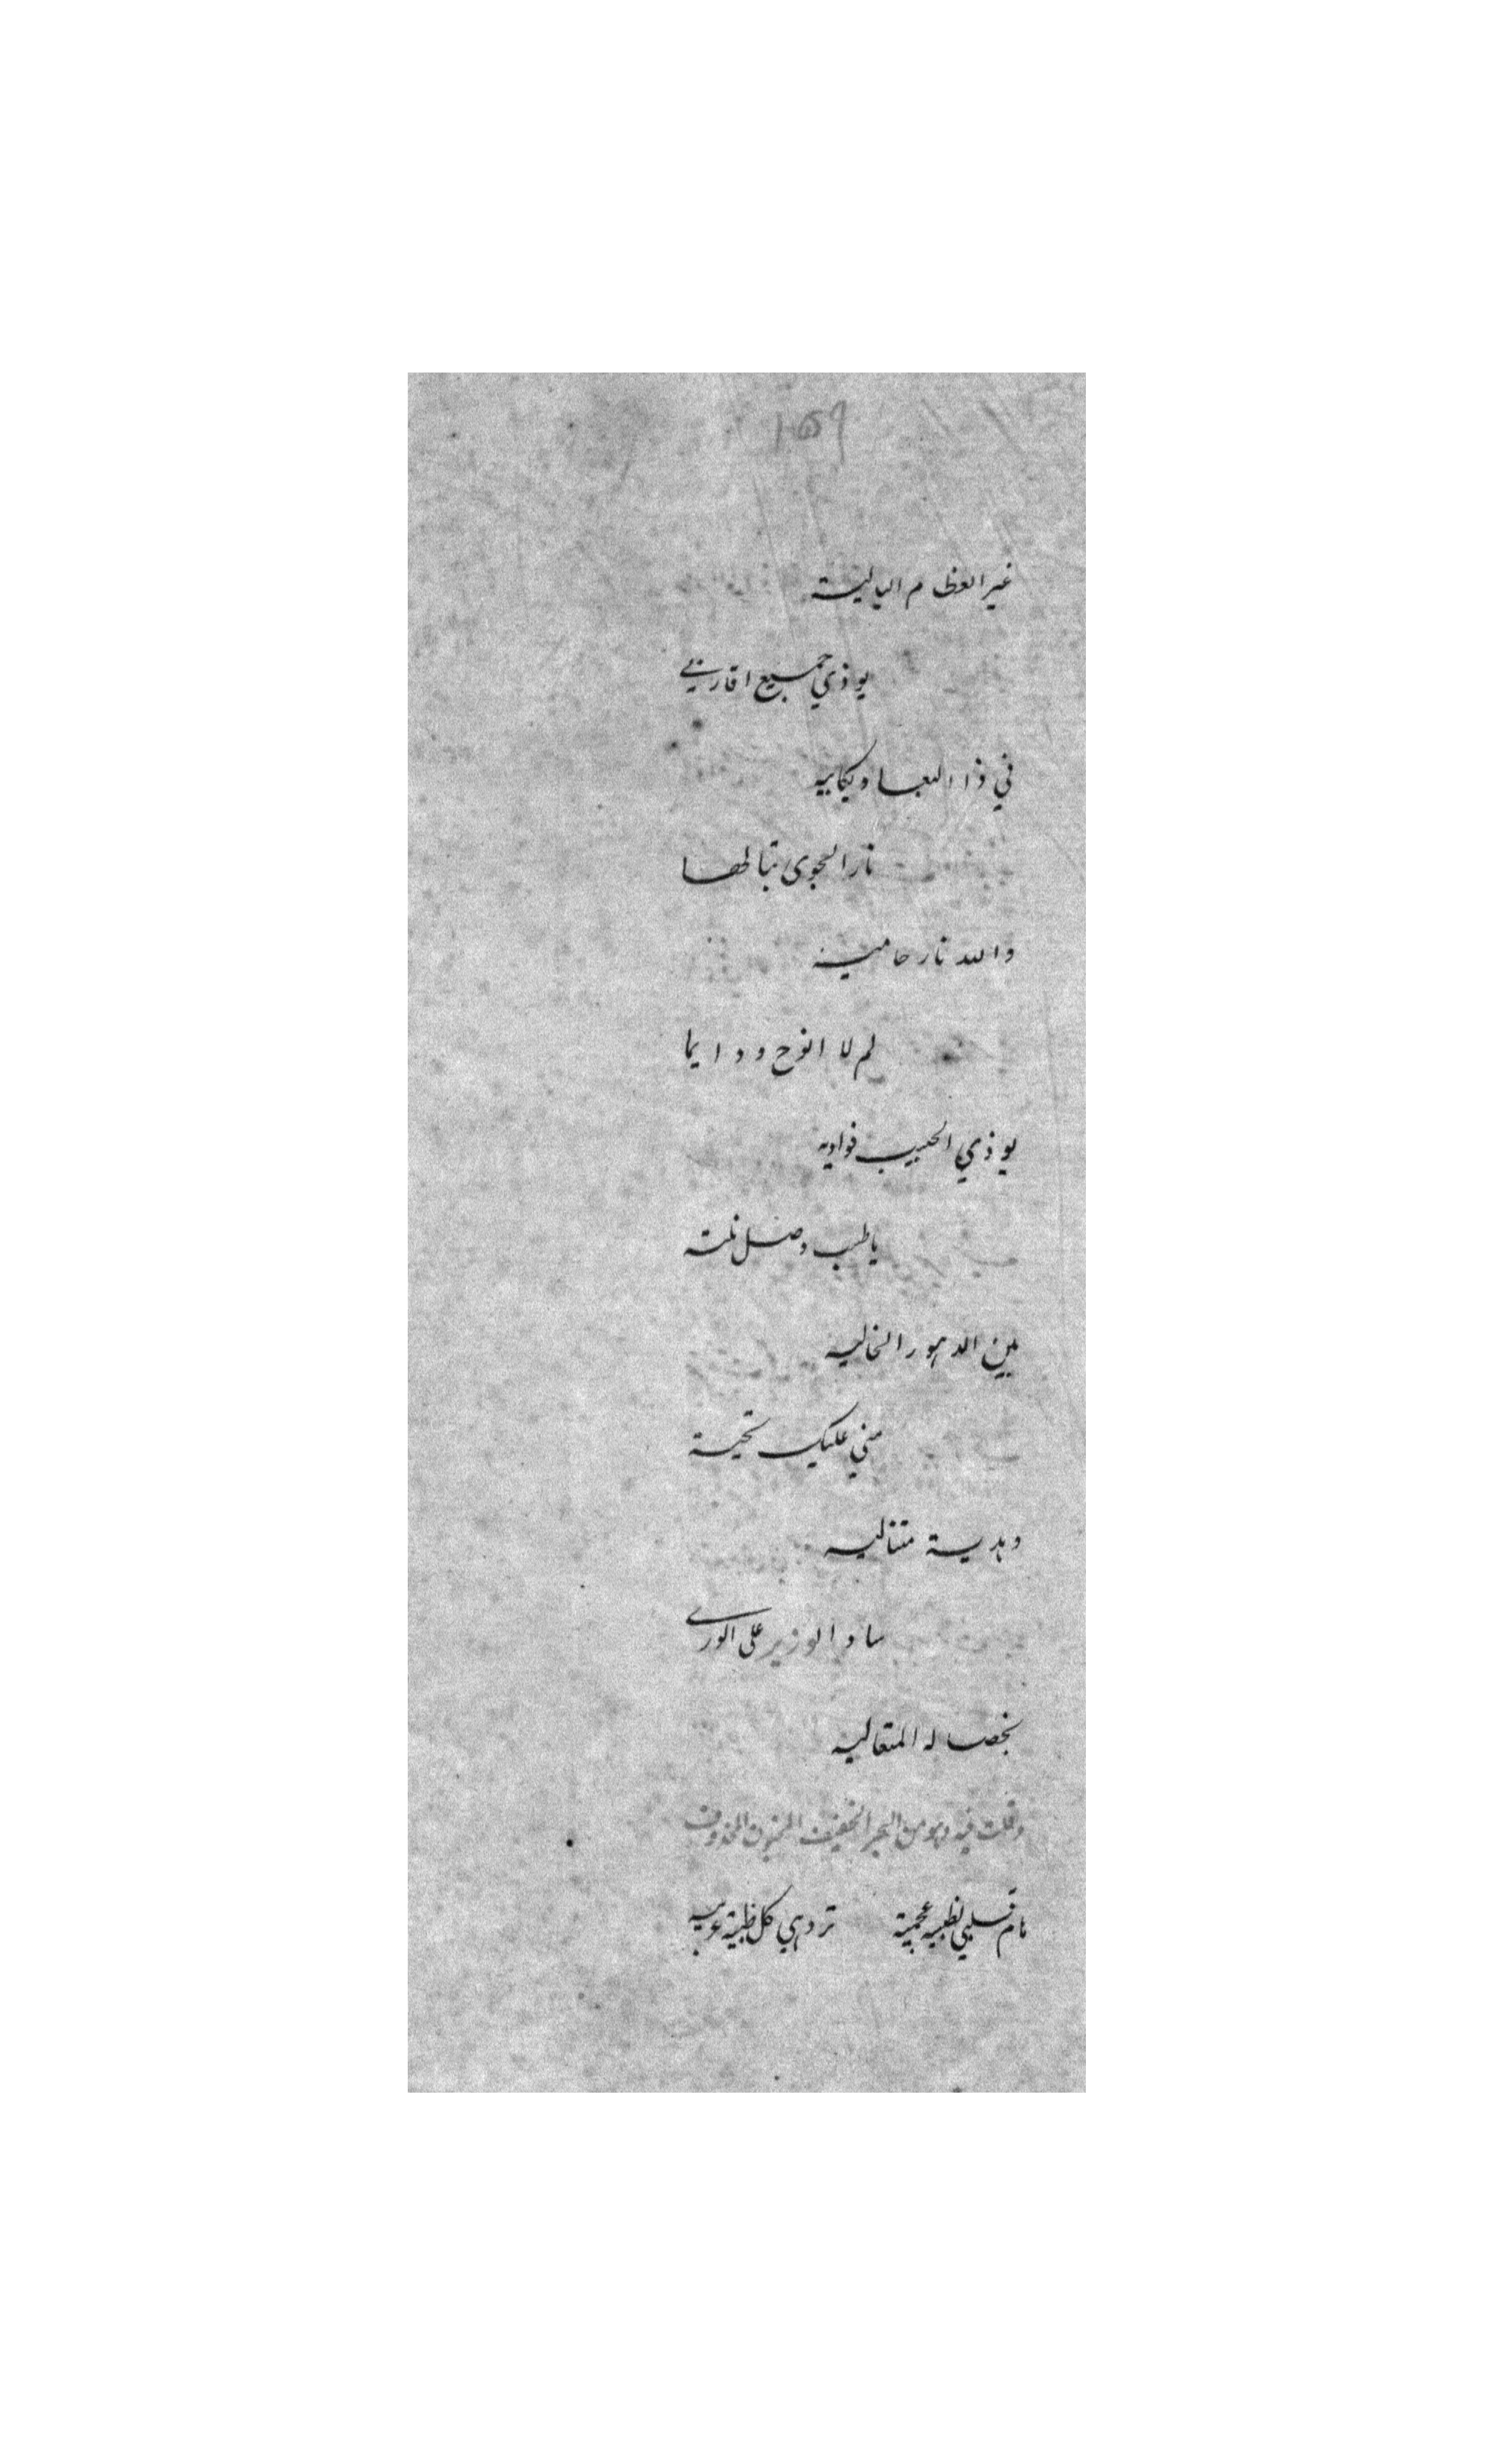 ١٥٩
غير العظام البالية
يوذي جميع اقاربي
في ذا البعاد بكاييه
نار الجوى تبا لها
والله نار حامية
لم لا انوح ودايما
يوذي الحبيب فواديه
يا طيب وصل نلته
بين الدهور الخاليه
مني عليك تحية
وهدية متتاليه
ساد الوزير على الورى
بخصاله المتعاليه
وقلت فيه وهو من البحر الخفيف المخبون المحذوف
هام قلبي بظبية عجمية تزدهي كل ظبية عربيه